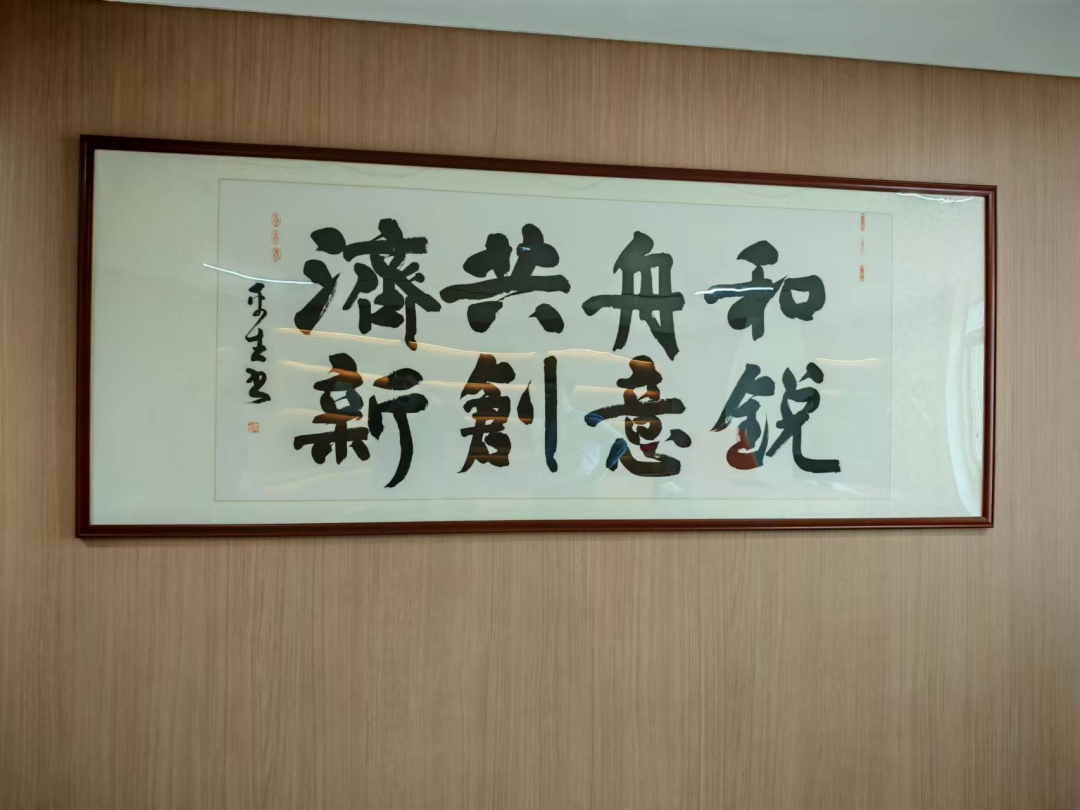 和舟共濟
銳意創新
生书